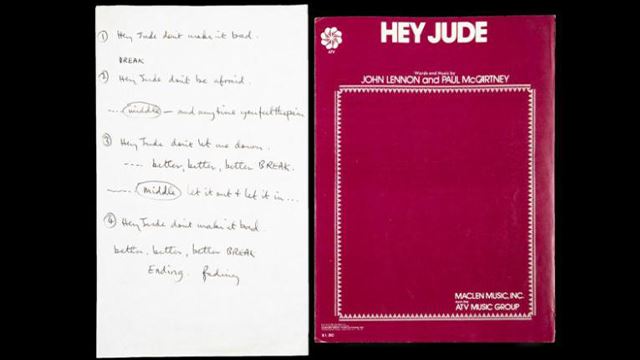 ① Hey Jude dont make it bad.
BREAK
② Hey Jude don't be afraid.
.... middle — and anytime you feel the pain
③ Hey Jude don't let me down.
---- better, better, better BREAK.
middle let it out & let it in...
④ Hey Jude don't make it bad.
better, better, better BREAK
Ending. fading
ATV
HEY JUDE
Words and Music by
JOHN LENNON and PAUL McCARTNEY
MACLEN MUSIC, INC.
ATV MUSIC GROUP